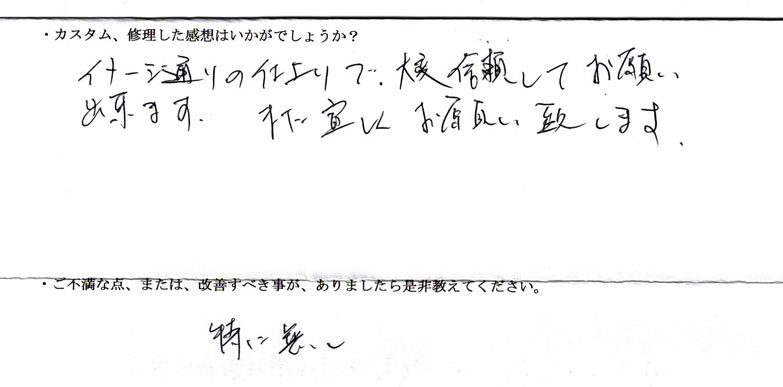 ・カスタム、修理した感想はいかがでしょうか？
イメージ通りの仕上りで、大変信頼してお願い
出来ます。 また宜しくお願い致します。
・ご不満な点、または、改善すべき事が、ありましたら是非教えてください。
特に無し